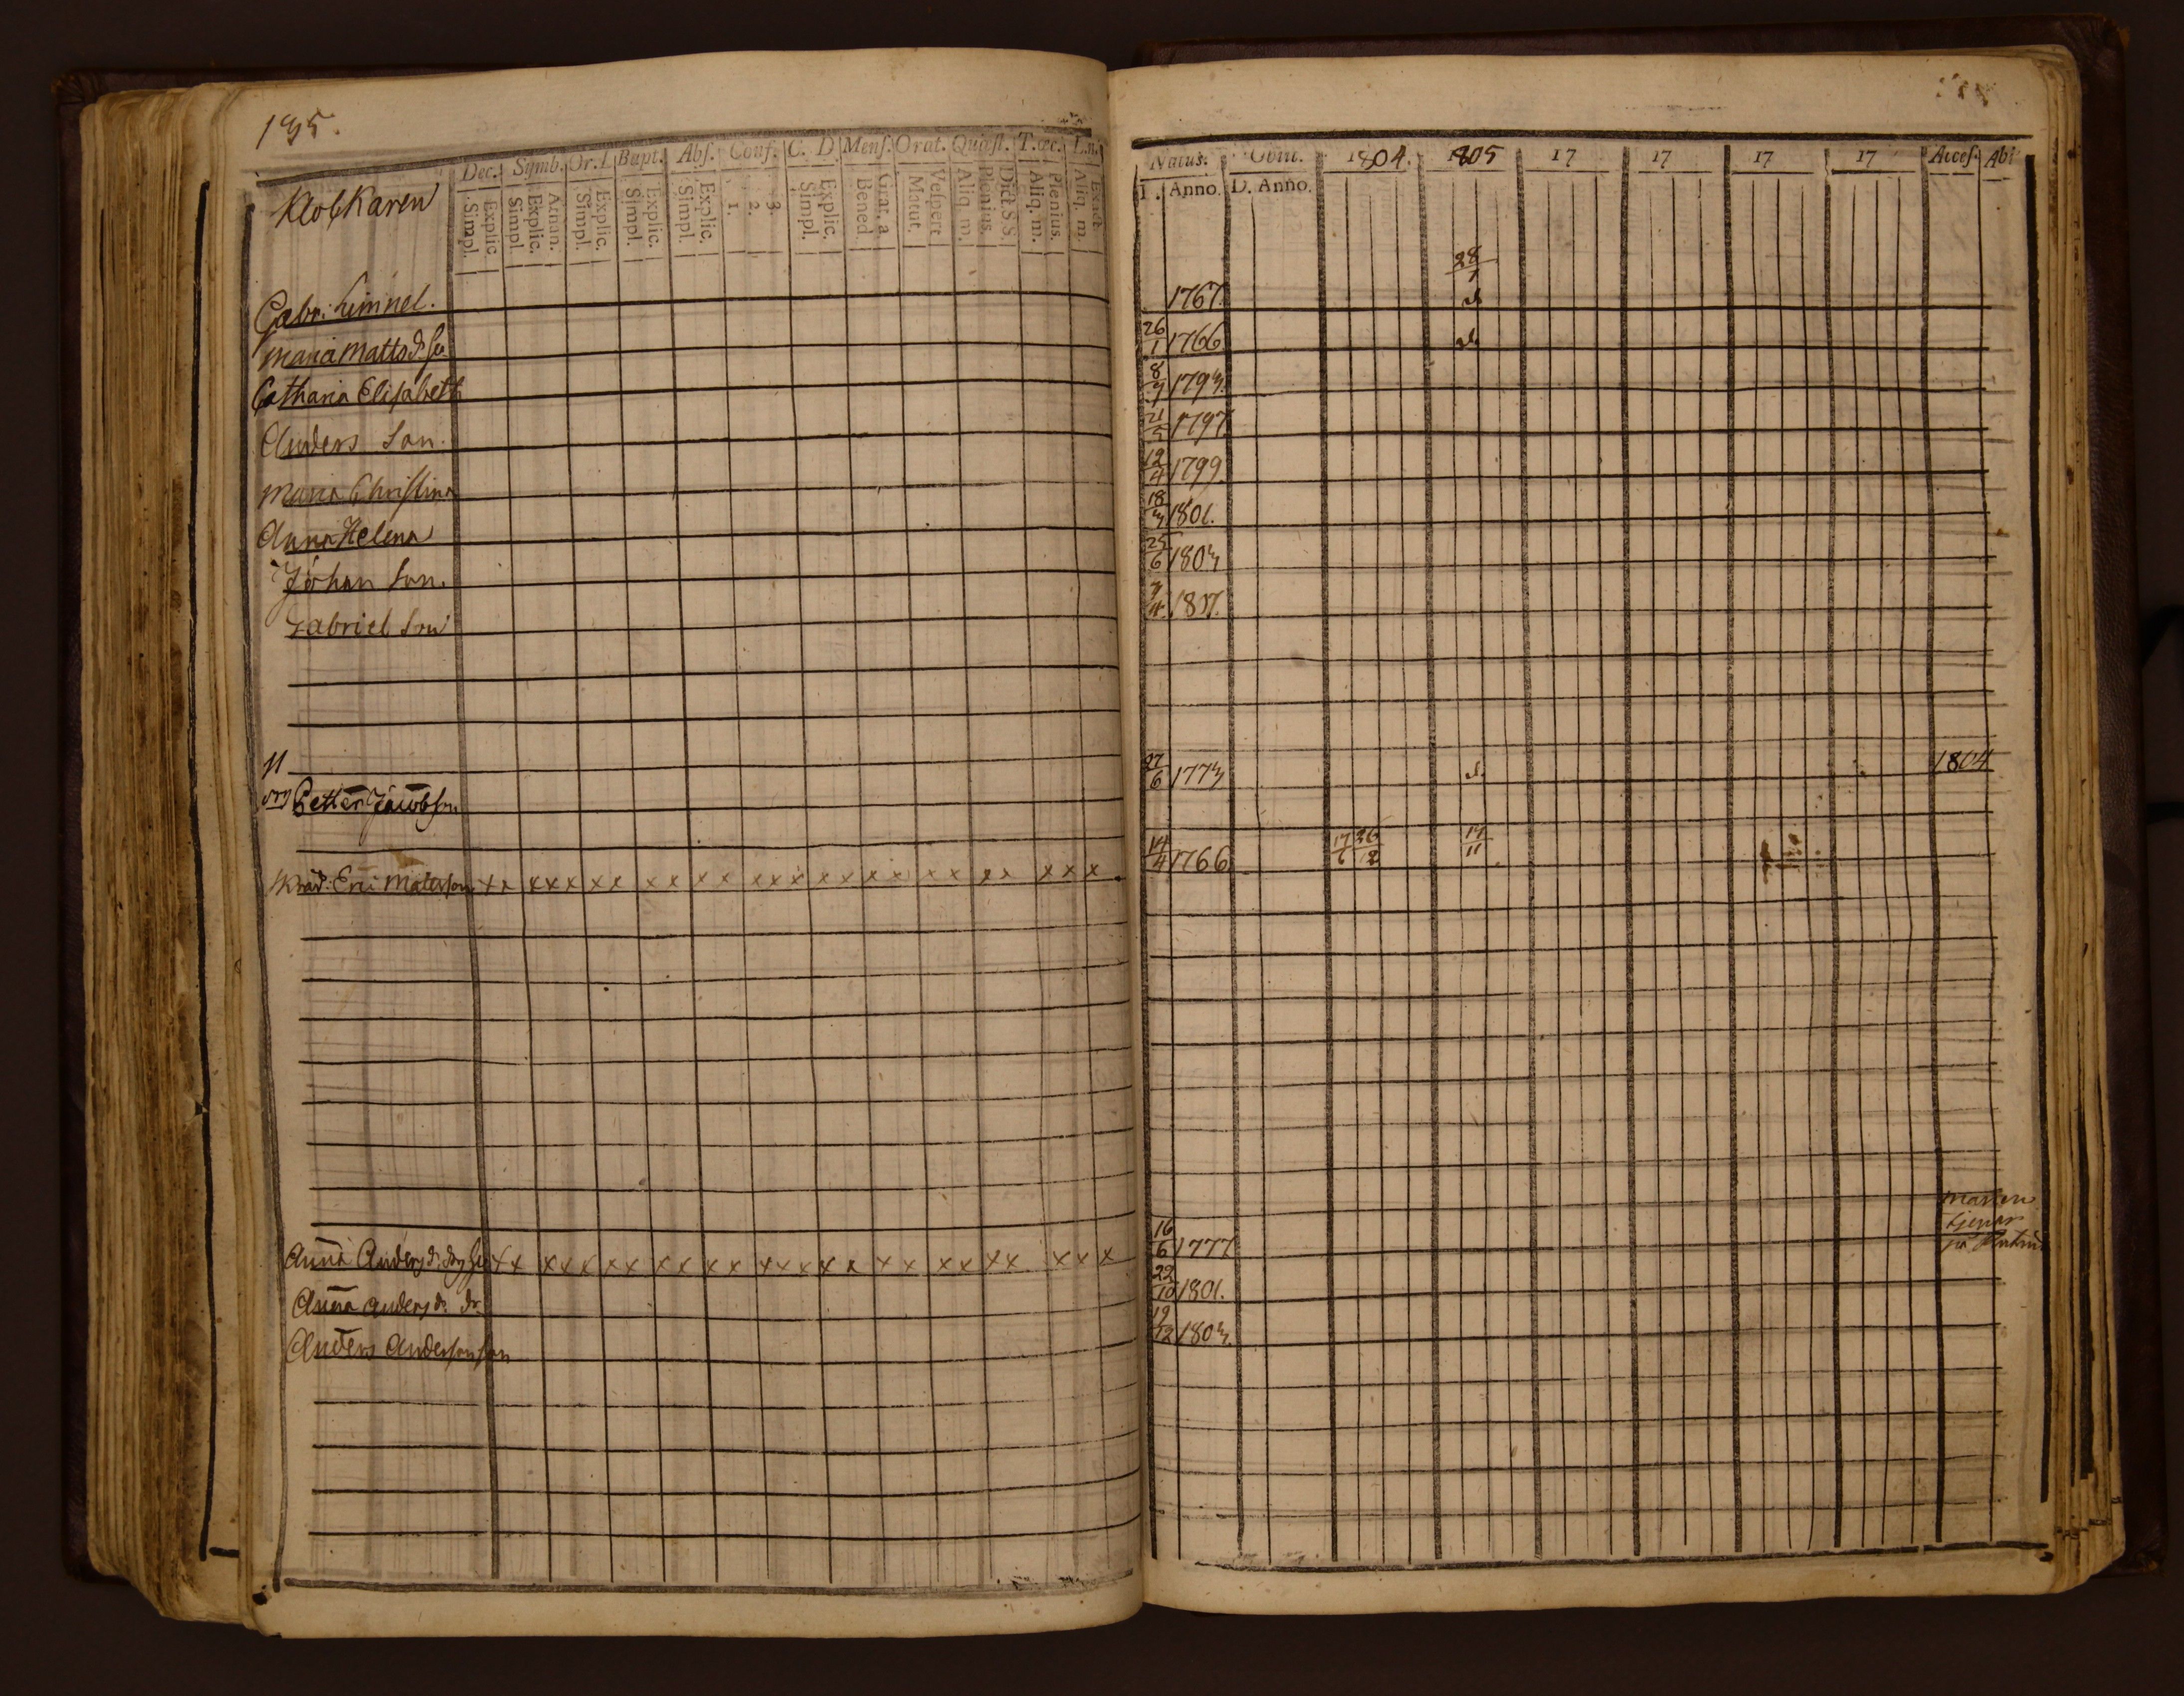 135.
Dec. Symb. Or. D Bapt. Abs. Conf. C. D Mens. Orat. Quæst. T. œc. L.n.
Klobkaren
Simpl. Explic Simpl Explic. Aman. Simpl. Explic. Simpl. Explic. Simpl. Explic. 1. 2. 3. Simpl. Explic. Bened. Grat. a Matut. Vespert Aliq. m. Plenius. Dict S.S. Aliq. m. Plenius. Aliq. m. Exact
Gabr: Limnel.
Maria Mattsd:
Catharia Elisabeth
Anders Son.
Maria Christina
Anna Helena
Johan Son.
Gabriel Son
11
Petter Jacobson
Eric Matsson x x x x x x x x x x x x x x x x x x x x x x x x x x x
Anna Andersd: x x x x x x x x x x x x x x x x x x x x x x x x x
Anna Andersd: dr
Anders Anderson son
Natus. 1804. 1805 17 17 17 17 Acces. Abi
Anno. D. Anno.
28/1
1767.
26/1 1766
8/9 1793.
21/5 1797
12/4 1799.
18/3 1801.
25/6 1803
3/4 1807.
27/6 1773 1804
14/4 1766 17/6 26/12 17/11
16/6 1777
22/10 1801.
19/12 1803.
mannen
tjenar